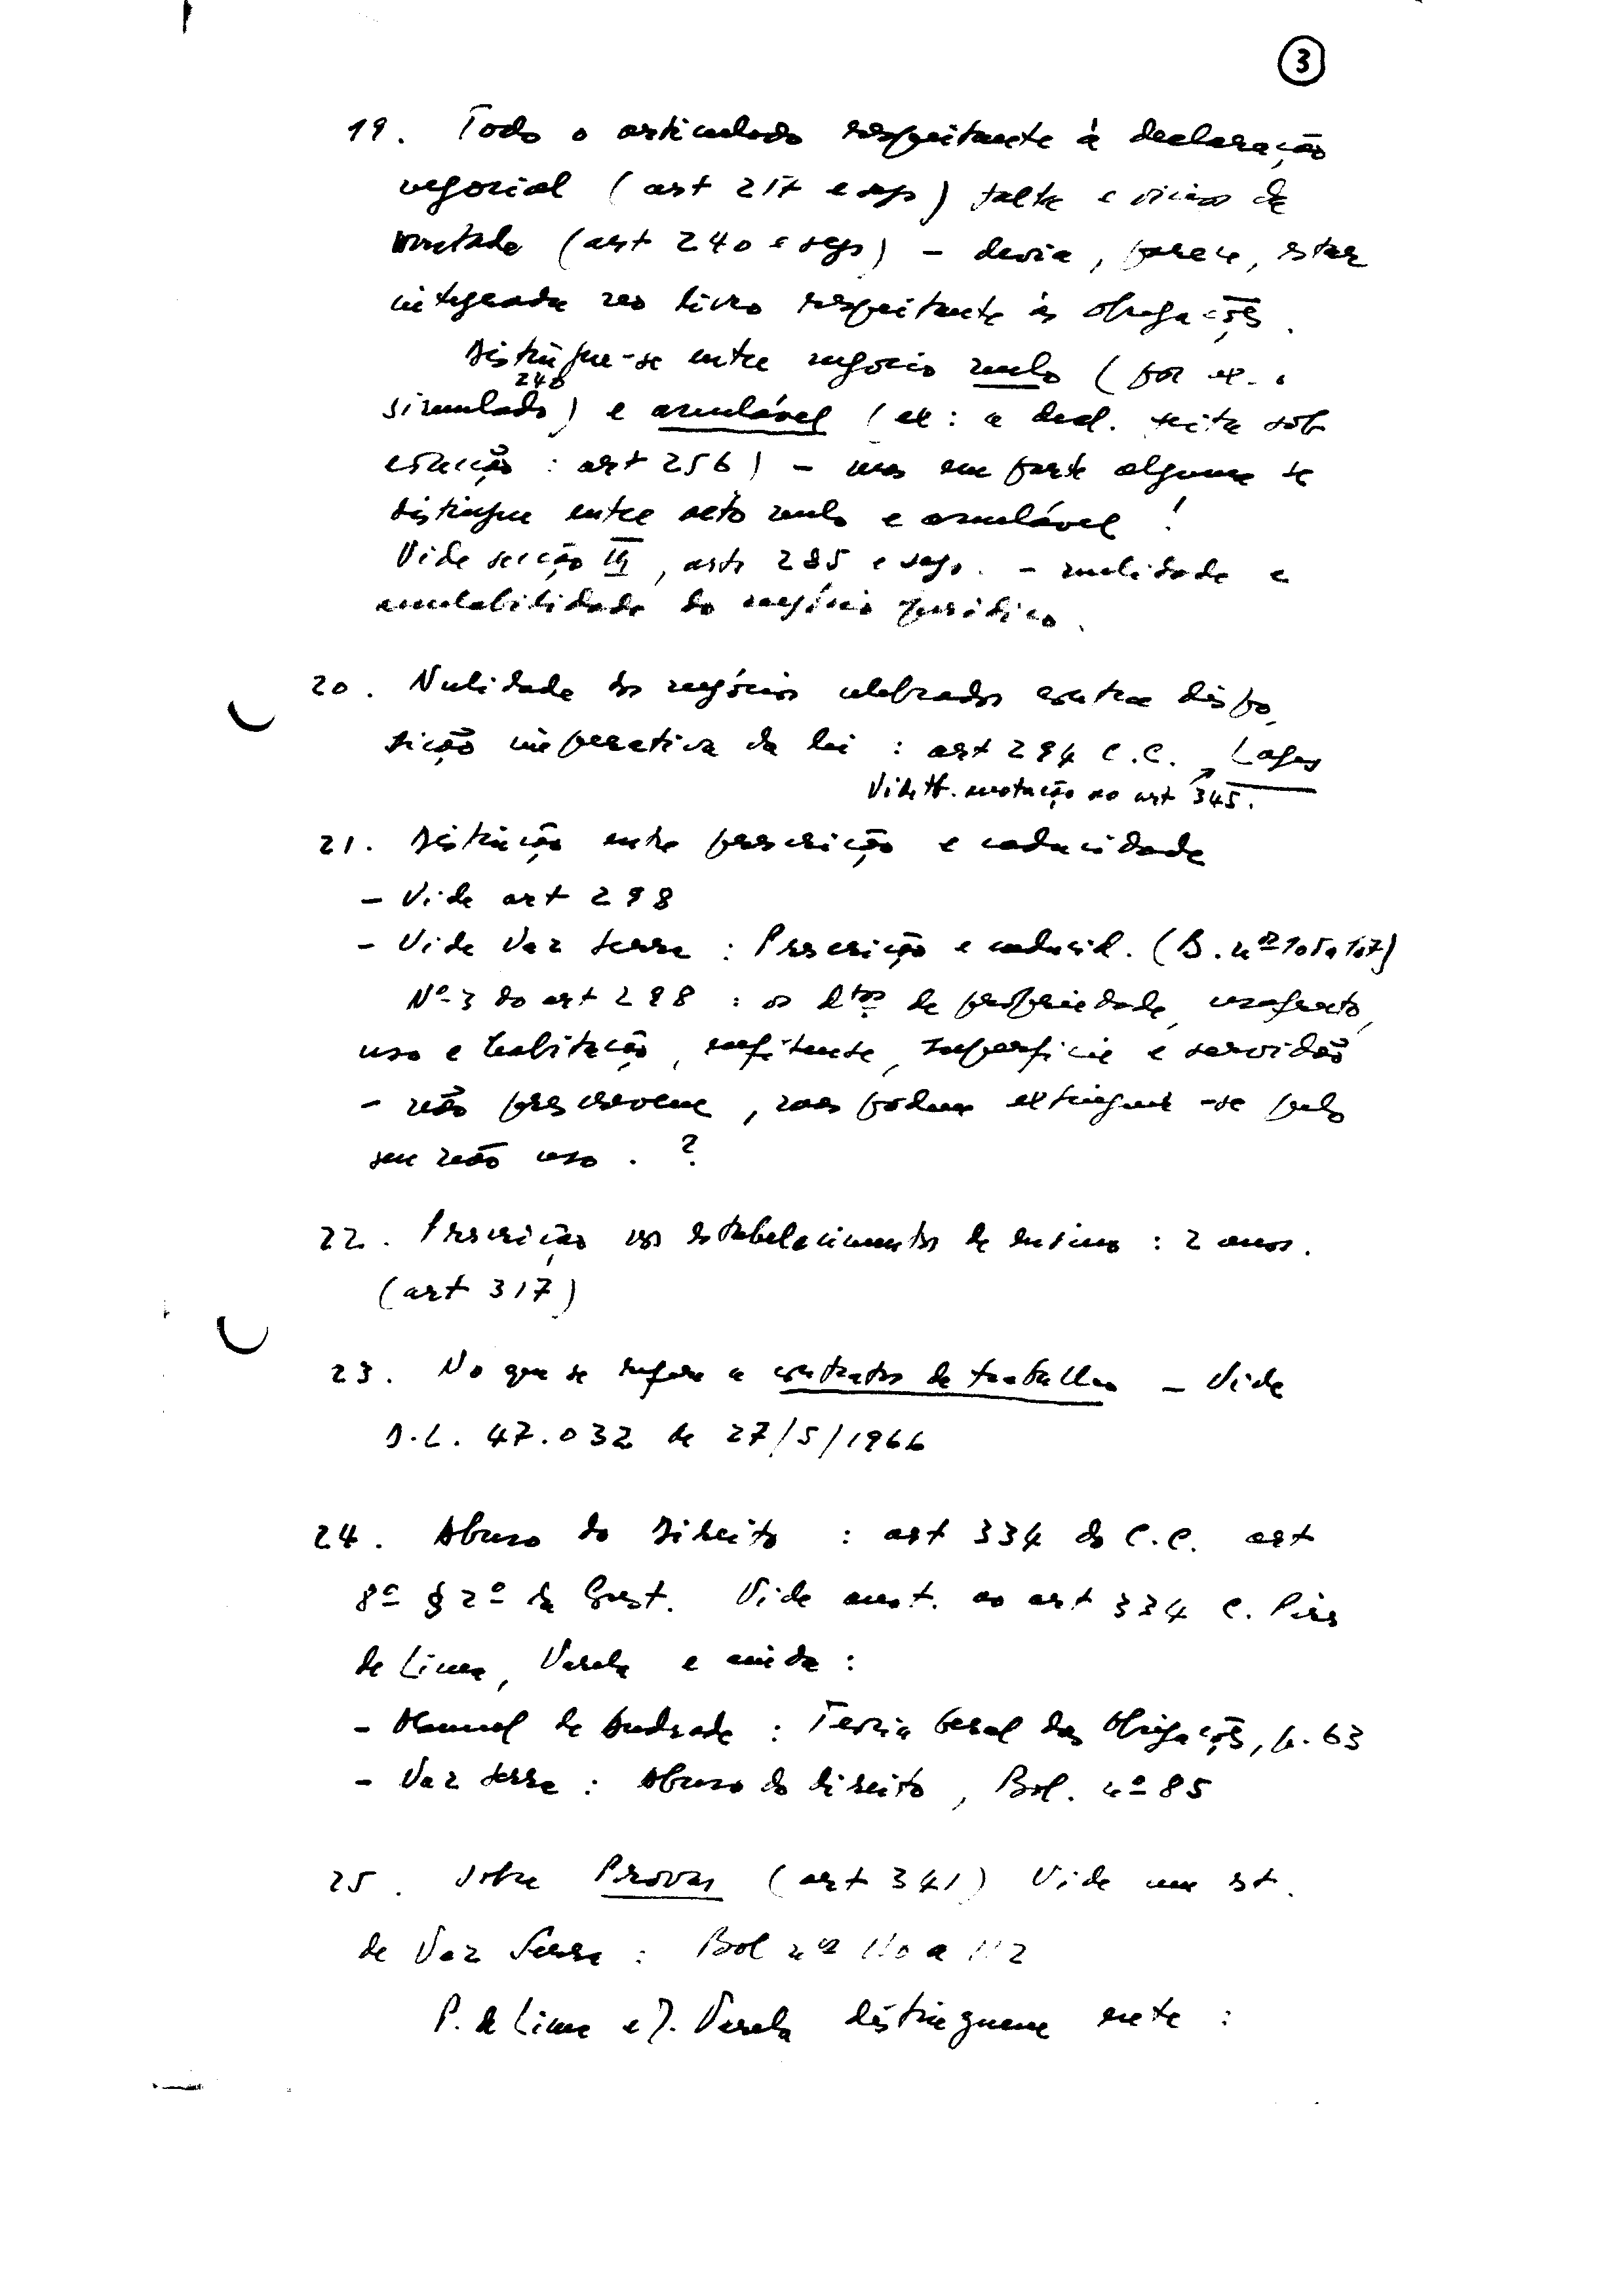 3
19. Todo o articulado respeitante à declaração
negocial (art 217 e segs) falta e vícios de
vontade (art 240 e segs) – devia, parece, estar
integrada no livro respeitante às obrigações.
Distingue-se entre negócio nulo (por ex. o
240
simulado) e anulável (ex: a decl. feita sob
coacção : art 256) – mas em parte alguma se
distingue entre acto nulo e anulável !
Vide secção III, arts 285 e segs. – nulidade e
anulabilidade do negócio jurídico.
20. Nulidade dos negócios celebrados contra dispo
sição imperativa da lei : art 294 C.C.
Vide tb. anotação ao art 345.
21. Distinção entre prescrição e caducidade
– Vide art 298
– Vide Vaz Serra : Prescrição e caducid. (B. nos 105 a 107)
Nº 3 do art 298 : os dtos de propriedade, usufruto,
uso e habitação, enfiteuse, superfície e servidão
– não prescrevem, mas podem extinguir-se pelo
seu não uso. ?
22. Prescrição nos estabelecimentos de ensino : 2 anos.
(art 317)
23. No que se refere a contratos de trabalho – Vide
D.L. 47.032 de 27/5/1966
24. Abuso do Direito : art 334 do C.C. art
8º § 2º da Const. Vide anot. ao art 334 C. Pires
de Lima, Varela e ainda :
– Manuel de Andrade : Teoria Geral das Obrigações, p. 63
– Vaz Serra : Abuso do direito, Bol. nº 85
25. Sobre Provas (art 341) Vide um est.
de Vaz Serra : Bol nos 110 a 112
P. de Lima e J. Varela distinguem entre :